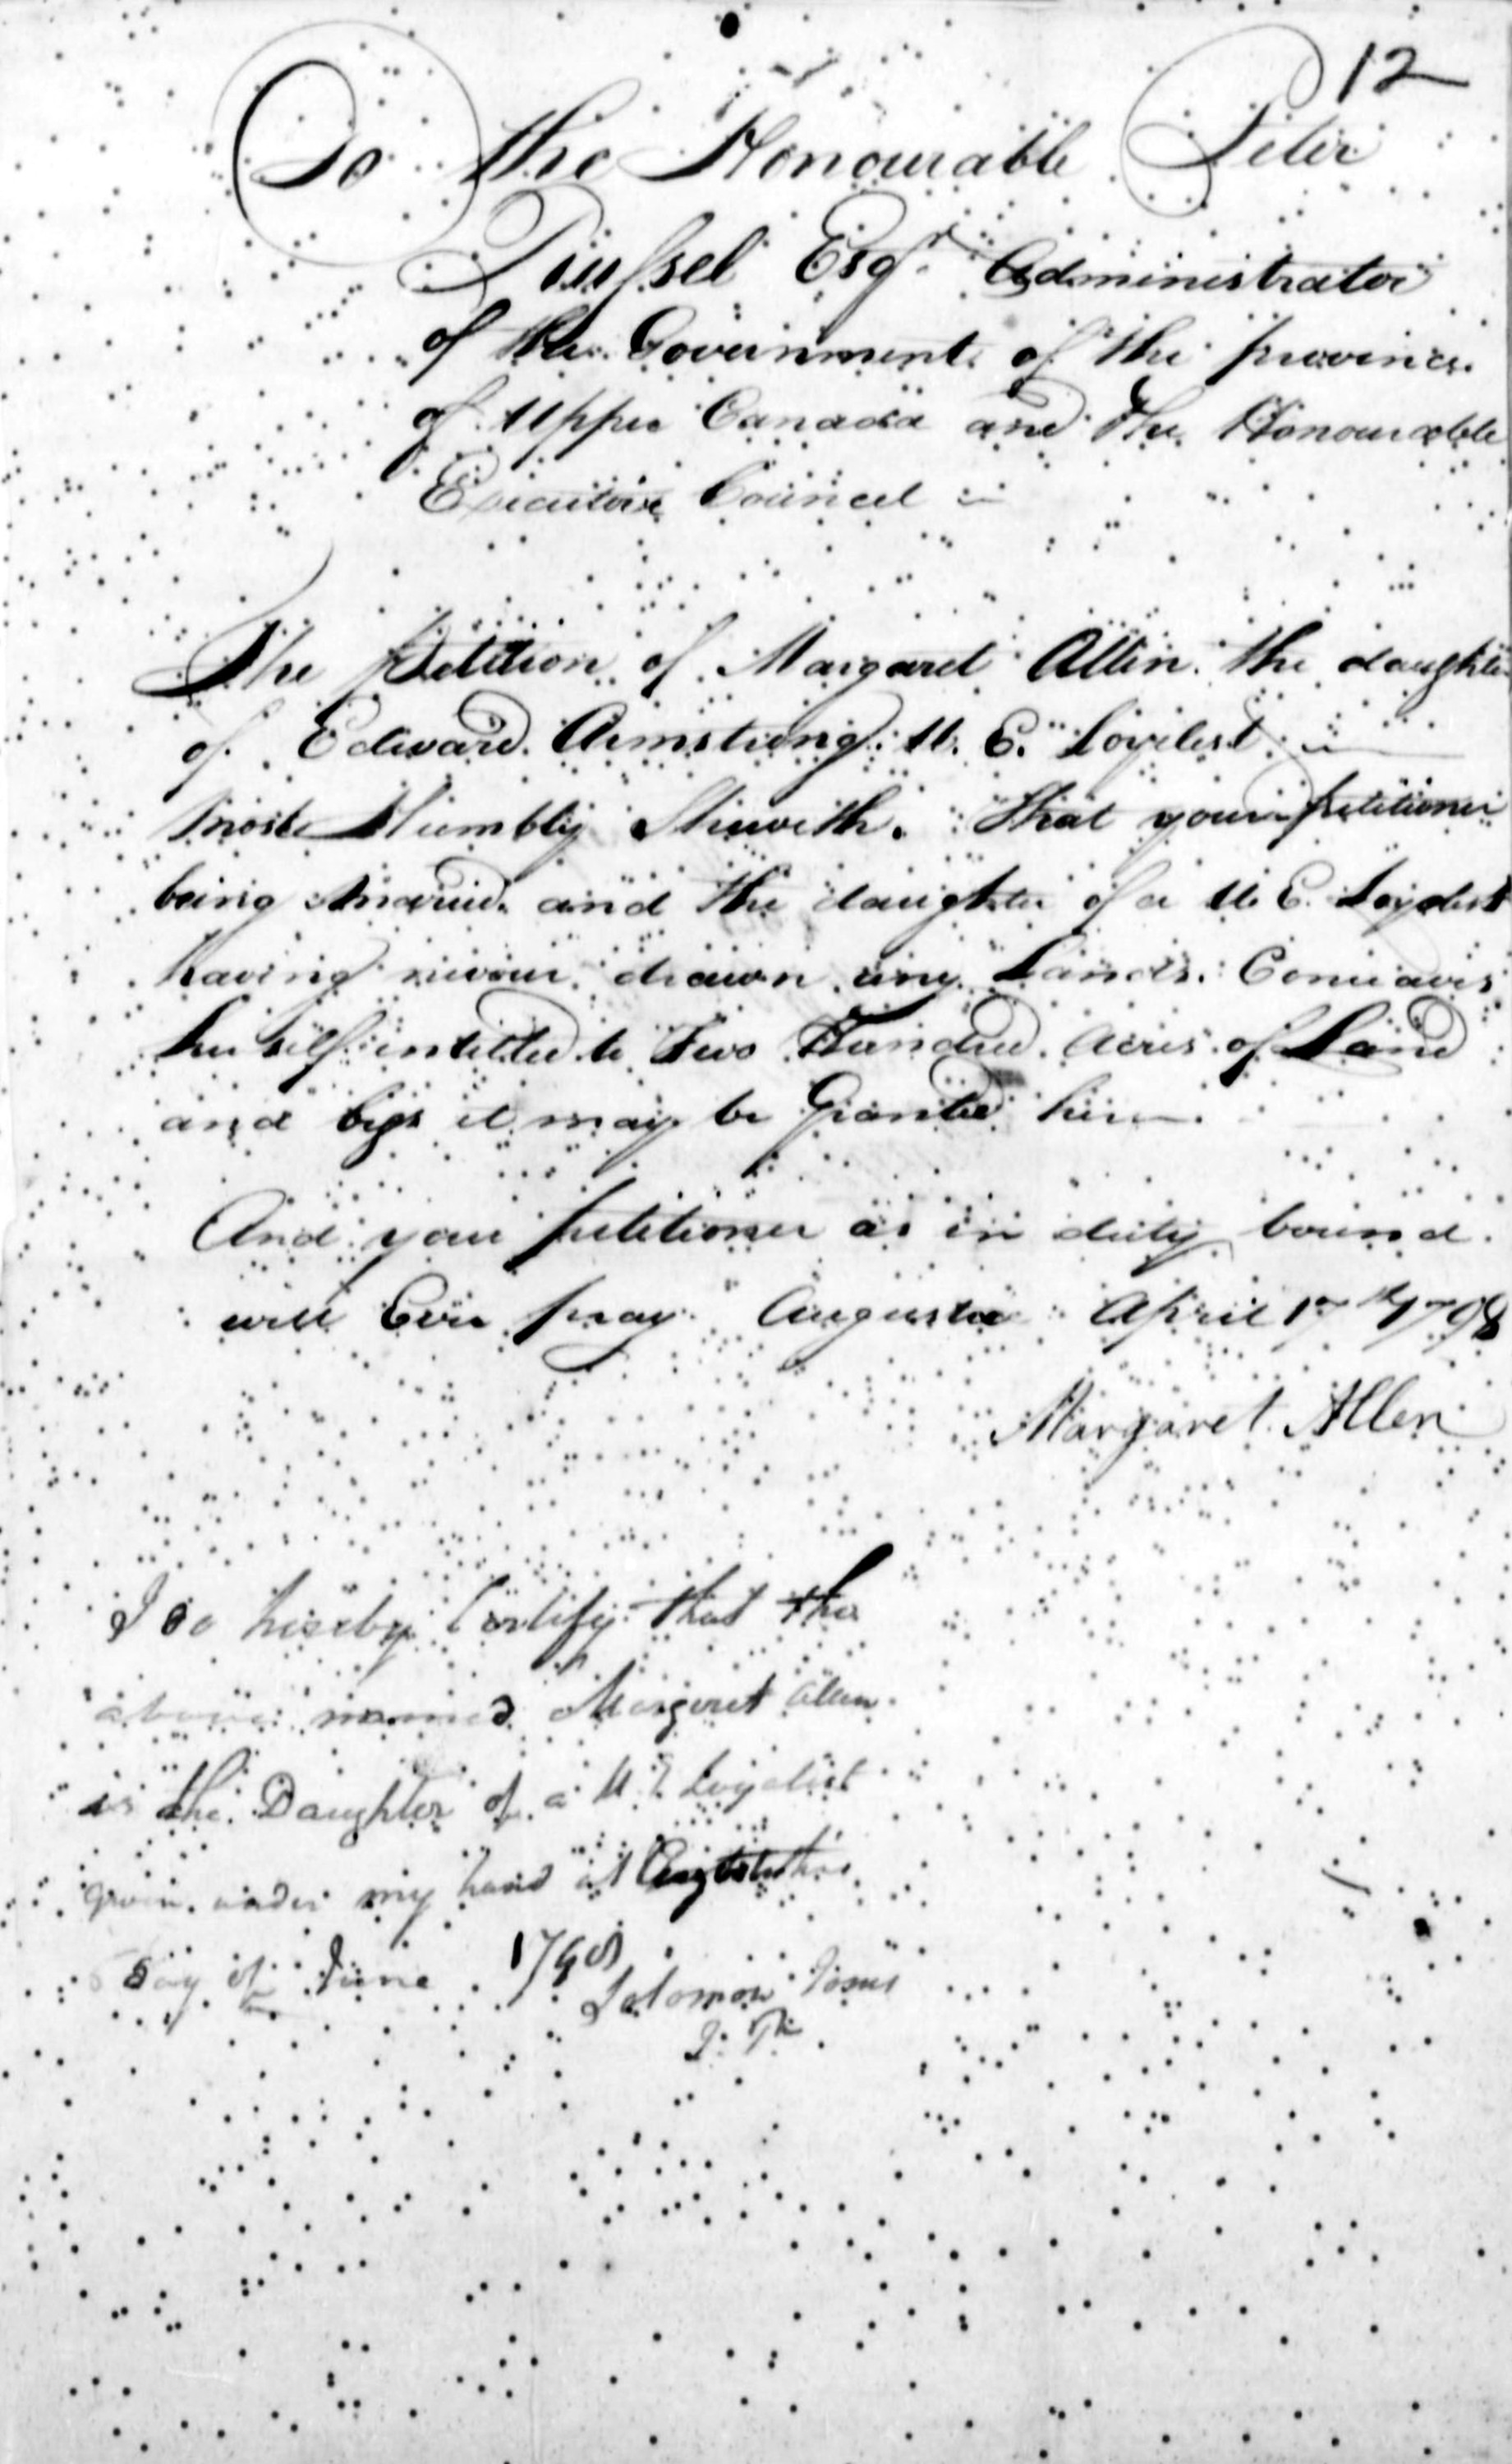 12
To the Honourable Peter
Russel Esqr. Administrator
of the Government of the province
of Upper Canada and the Honourable
Executive Council
The Petition of Margaret Allen the daughter
of Edward Armstrong U. E. Loyelest
most Humbly Sheweth. That your petitioner
being Married and the daughter of a U. E. Loyelest
having never drawn any Lands. Conceaves
herself intitled to Two Hundred Acres of Land
and begs it may be Granted her
And your petitioner as in duty bound
will Ever pray Augusta April 17th 1798
Margaret Allen
I do hereby Certify that the
above named Margaret Allen
is the Daughter of a U E Loyalist
given under my hand at Augusta this
Day of June 1798
Solomon Jones